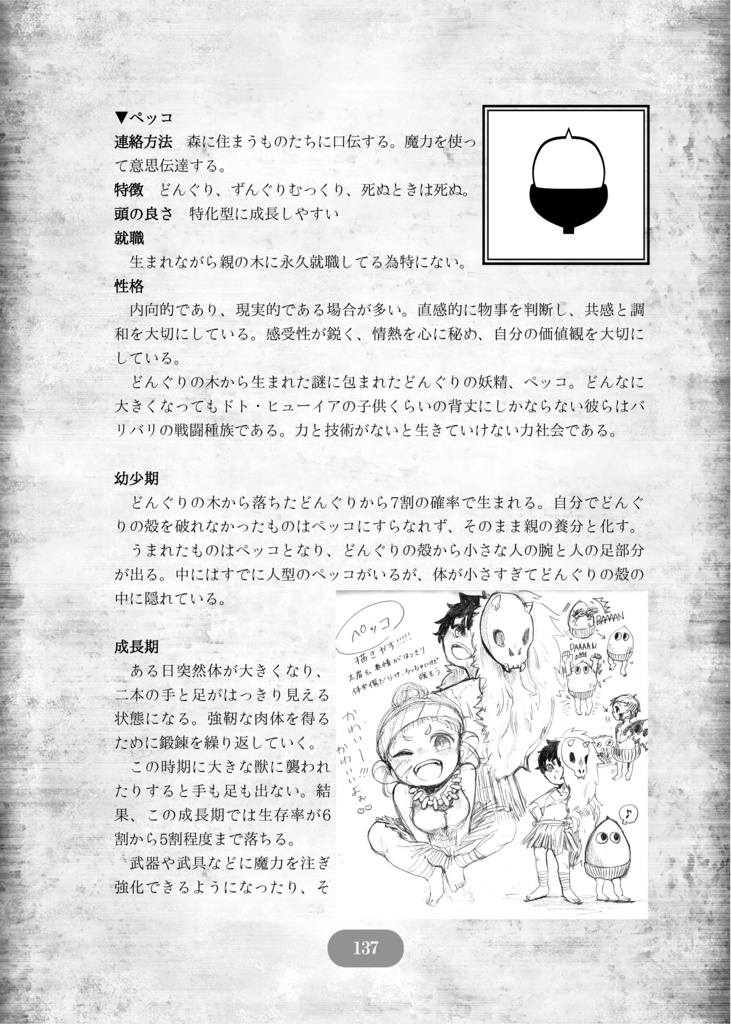 ▼ペッコ
連絡方法　森に住まうものたちに口伝する。魔力を使っ
て意思伝達する。
特徴　どんぐり、ずんぐりむっくり、死ぬときは死ぬ。
頭の良さ　特化型に成長しやすい
就職
　生まれながら親の木に永久就職してる為特にない。
性格
　内向的であり、現実的である場合が多い。直感的に物事を判断し、共感と調
和を大切にしている。感受性が鋭く、情熱を心に秘め、自分の価値観を大切に
している。
　どんぐりの木から生まれた謎に包まれたどんぐりの妖精、ペッコ。どんなに
大きくなってもドト・ヒューイアの子供くらいの背丈にしかならない彼らはバ
リバリの戦闘種族である。力と技術がないと生きていけない力社会である。
幼少期
　どんぐりの木から落ちたどんぐりから7割の確率で生まれる。自分でどんぐ
りの殻を破れなかったものはペッコにすらなれず、そのまま親の養分と化す。
　うまれたものはペッコとなり、どんぐりの殻から小さな人の腕と人の足部分
が出る。中にはすでに人型のペッコがいるが、体が小さすぎてどんぐりの殻の
中に隠れている。
成長期
　ある日突然体が大きくなり、
二本の手と足がはっきり見える
状態になる。強靭な肉体を得る
ために鍛錬を繰り返していく。
　この時期に大きな獣に襲われ
たりすると手も足も出ない。結
果、この成長期では生存率が6
割から5割程度まで落ちる。
　武器や武具などに魔力を注ぎ
強化できるようになったり、そ
ペッコ
描きやすい!!!!!
BAAAAN
DAAAAN
かわいー!!!
かわいいよぉ
♪
137